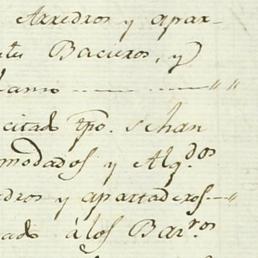 Arredros y apar-
Baceros, y
citado tpo. se han
modados y Alq.dos
edros y apartaderos
ado á los Bar.ros